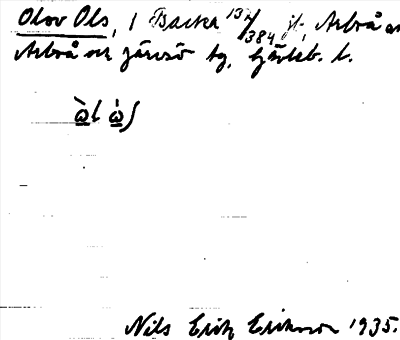 Olov Ols, i Backa 13/384 jl, Arbrå sn
Arbrå och Järvsö tg, Gävleb. l.
ὼl ω̇ʃ
Nils Erik Eriksson 1935.